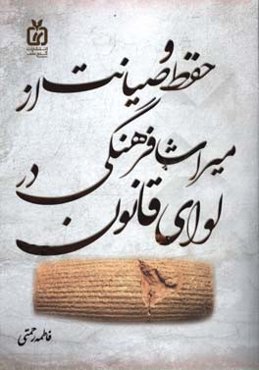 حفظ و صیانت از
میراث فرهنگی در
لوای قانون
فاطمه رحمتی